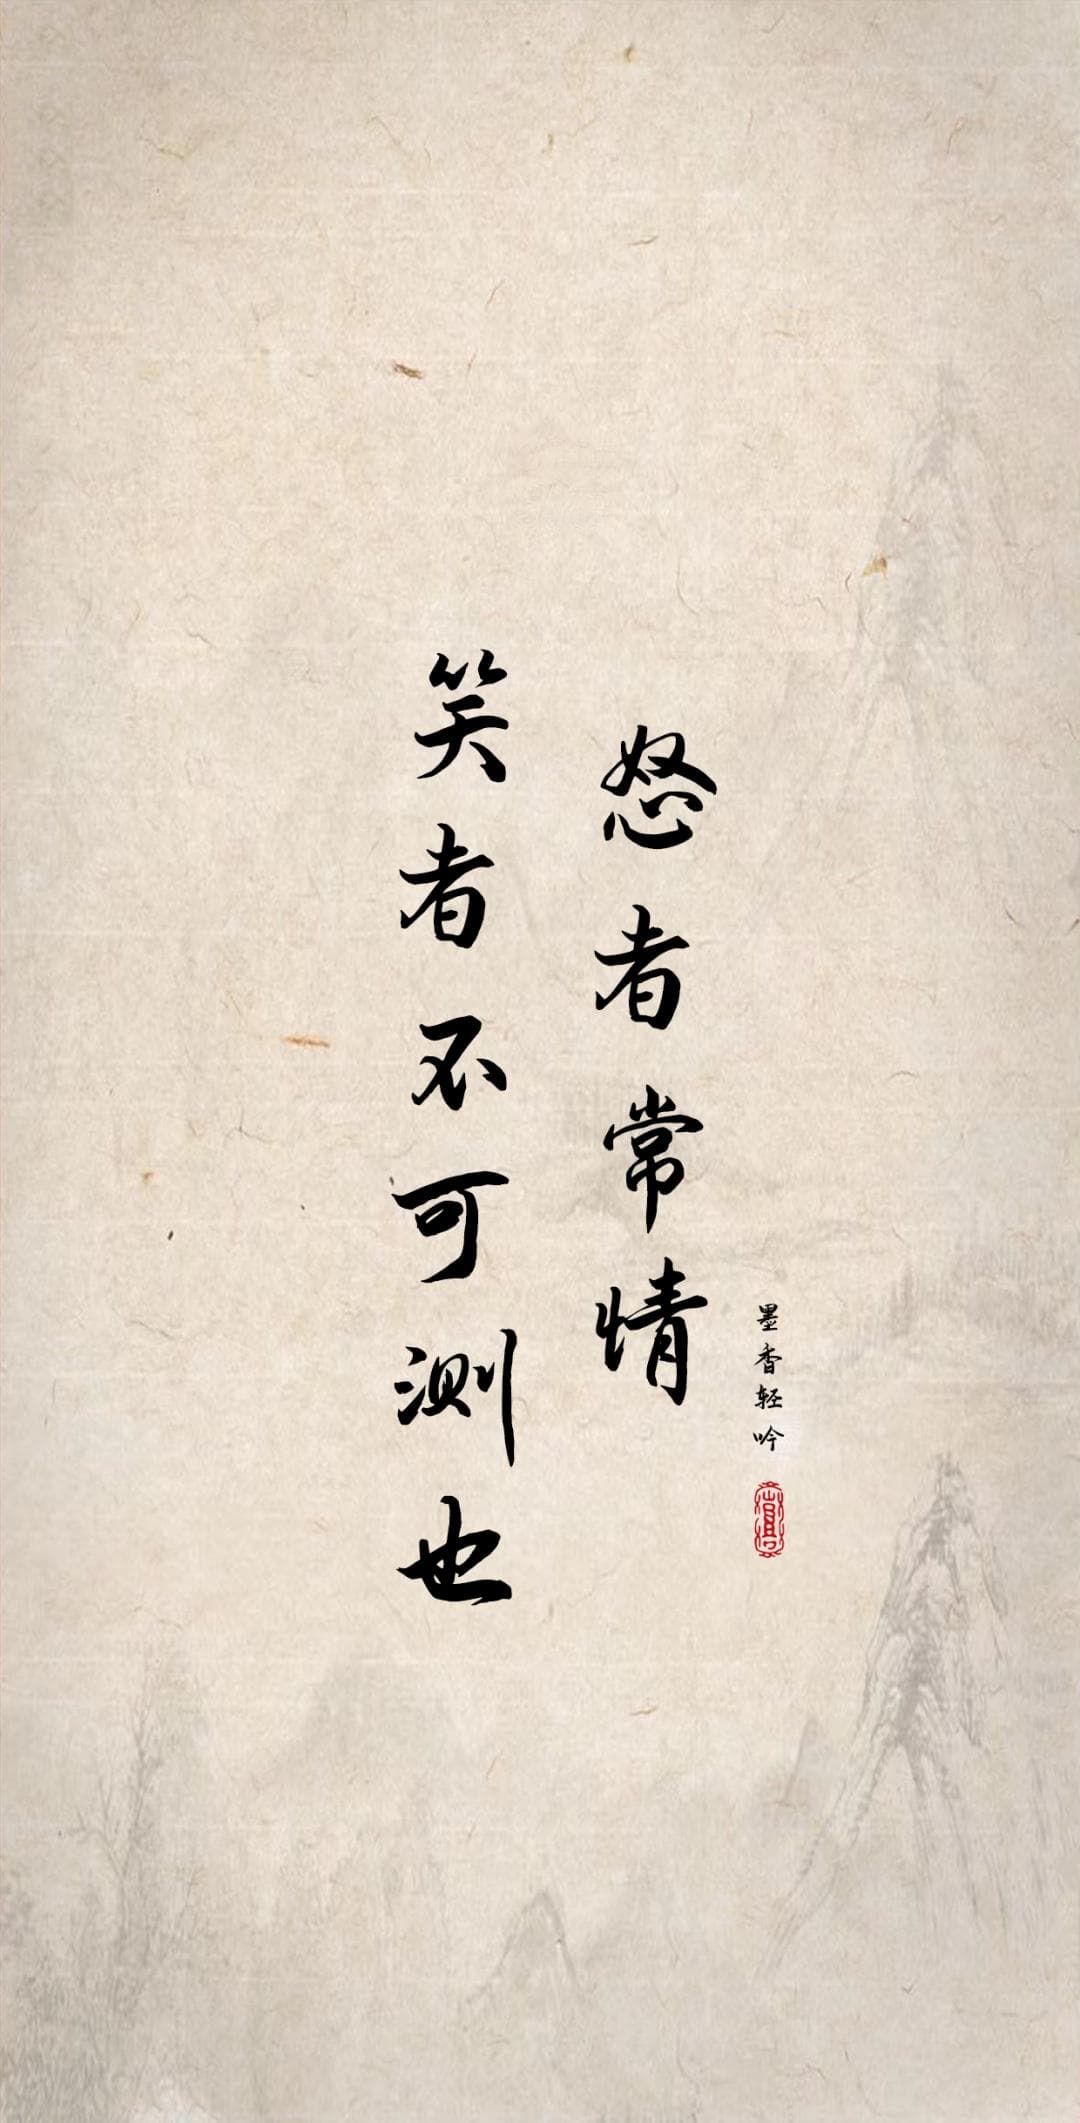 怒者常情
笑者不可测也
墨香轻吟